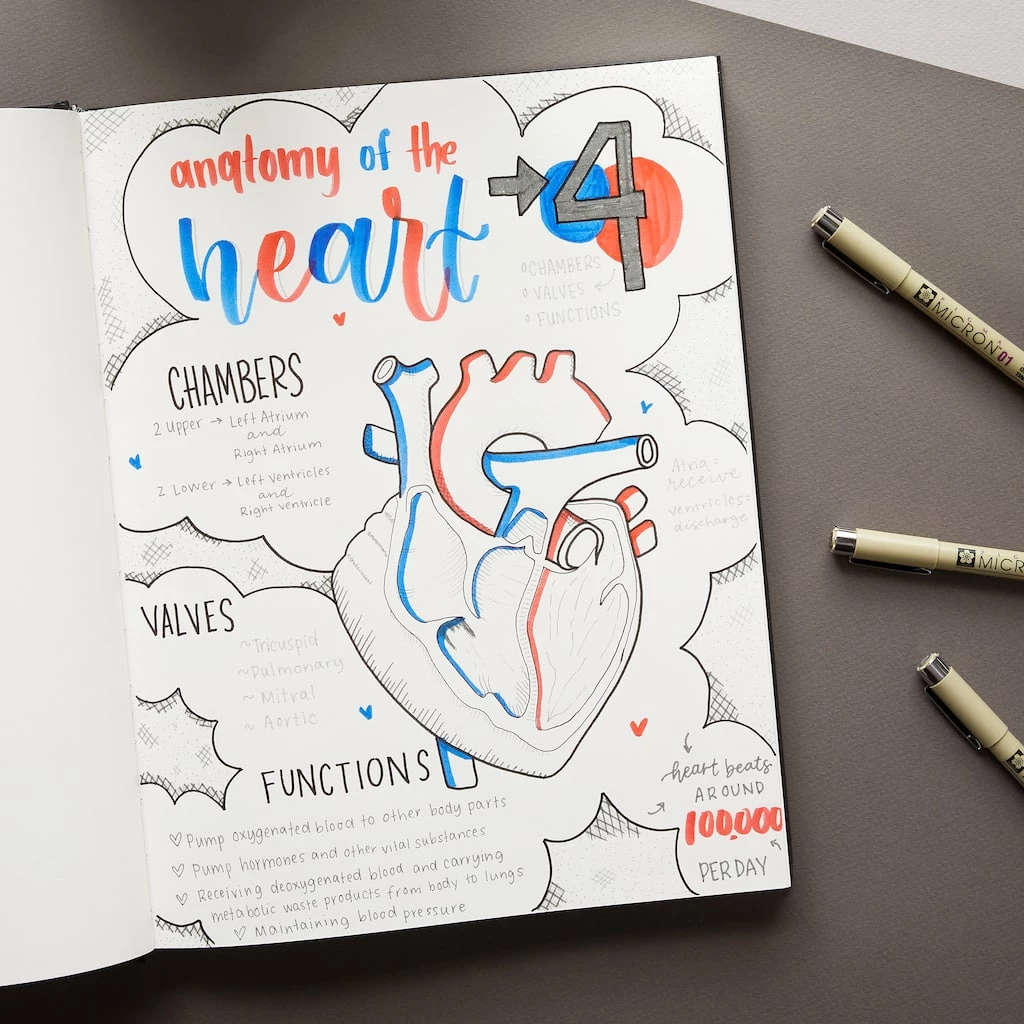 anatomy of the
heart
4
o CHAMBERS
o VALVES
o FUNCTIONS
CHAMBERS
2 Upper → Left Atrium
and
Right Atrium
2 Lower → Left ventricles
and
Right ventricle
Atria =
receive
ventricles =
discharge
VALVES
~ Tricuspid
~ Pulmonary
~ Mitral
~ Aortic
FUNCTIONS
♡ Pump oxygenated blood to other body parts
♡ Pump hormones and other vital substances
♡ Receiving deoxygenated blood and carrying
metabolic waste products from body to lungs
♡ Maintaining blood pressure
heart beats
AROUND
100,000
PER DAY
MICRON 01
MICR